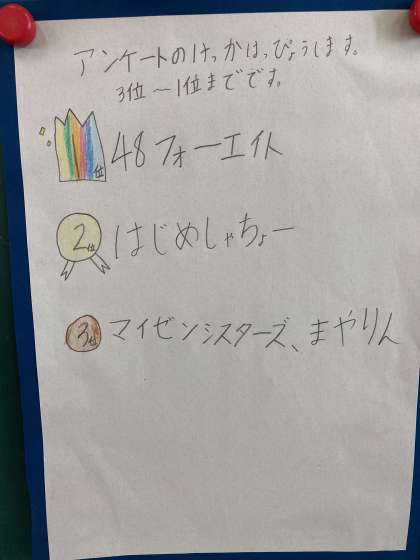 アンケートのけっかはっぴょうします。
3位～1位までです。
位 48フォーエイト
2位 はじめしゃちょー
3位 マイゼンシスターズ、まやりん